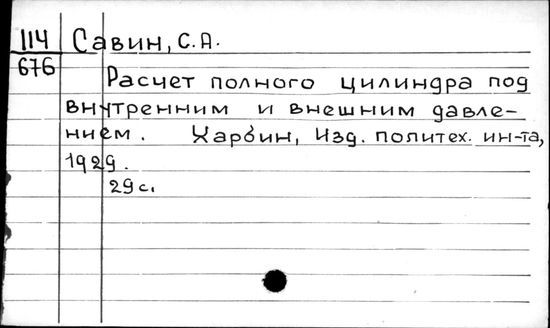 114 Савин, С.А.
676
Расчет полного цилиндра под
внутренним и внешним давле-
нием. Харбин, Изд. политех. ин-та,
1929.
29 с.